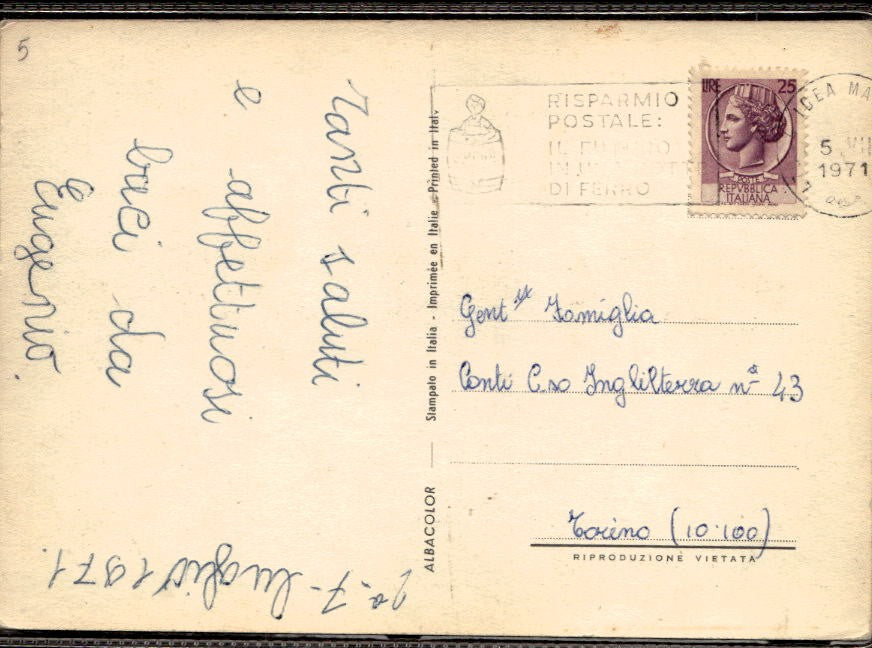 5
Tanti saluti
e affettuosi
baci da
Eugenio.
2-7- luglio 1971.
Stampato in Italia - Imprimée en Italie - Printed in Italy
ALBACOLOR
RISPARMIO
POSTALE:
DI FERRO
LIRE 25
POSTE
REPVBBLICA
ITALIANA
IDEA MA
5 VII
1971
Gent Famiglia
Conti C.so Inghilterra nº 43
Torino (10.100)
RIPRODUZIONE VIETATA